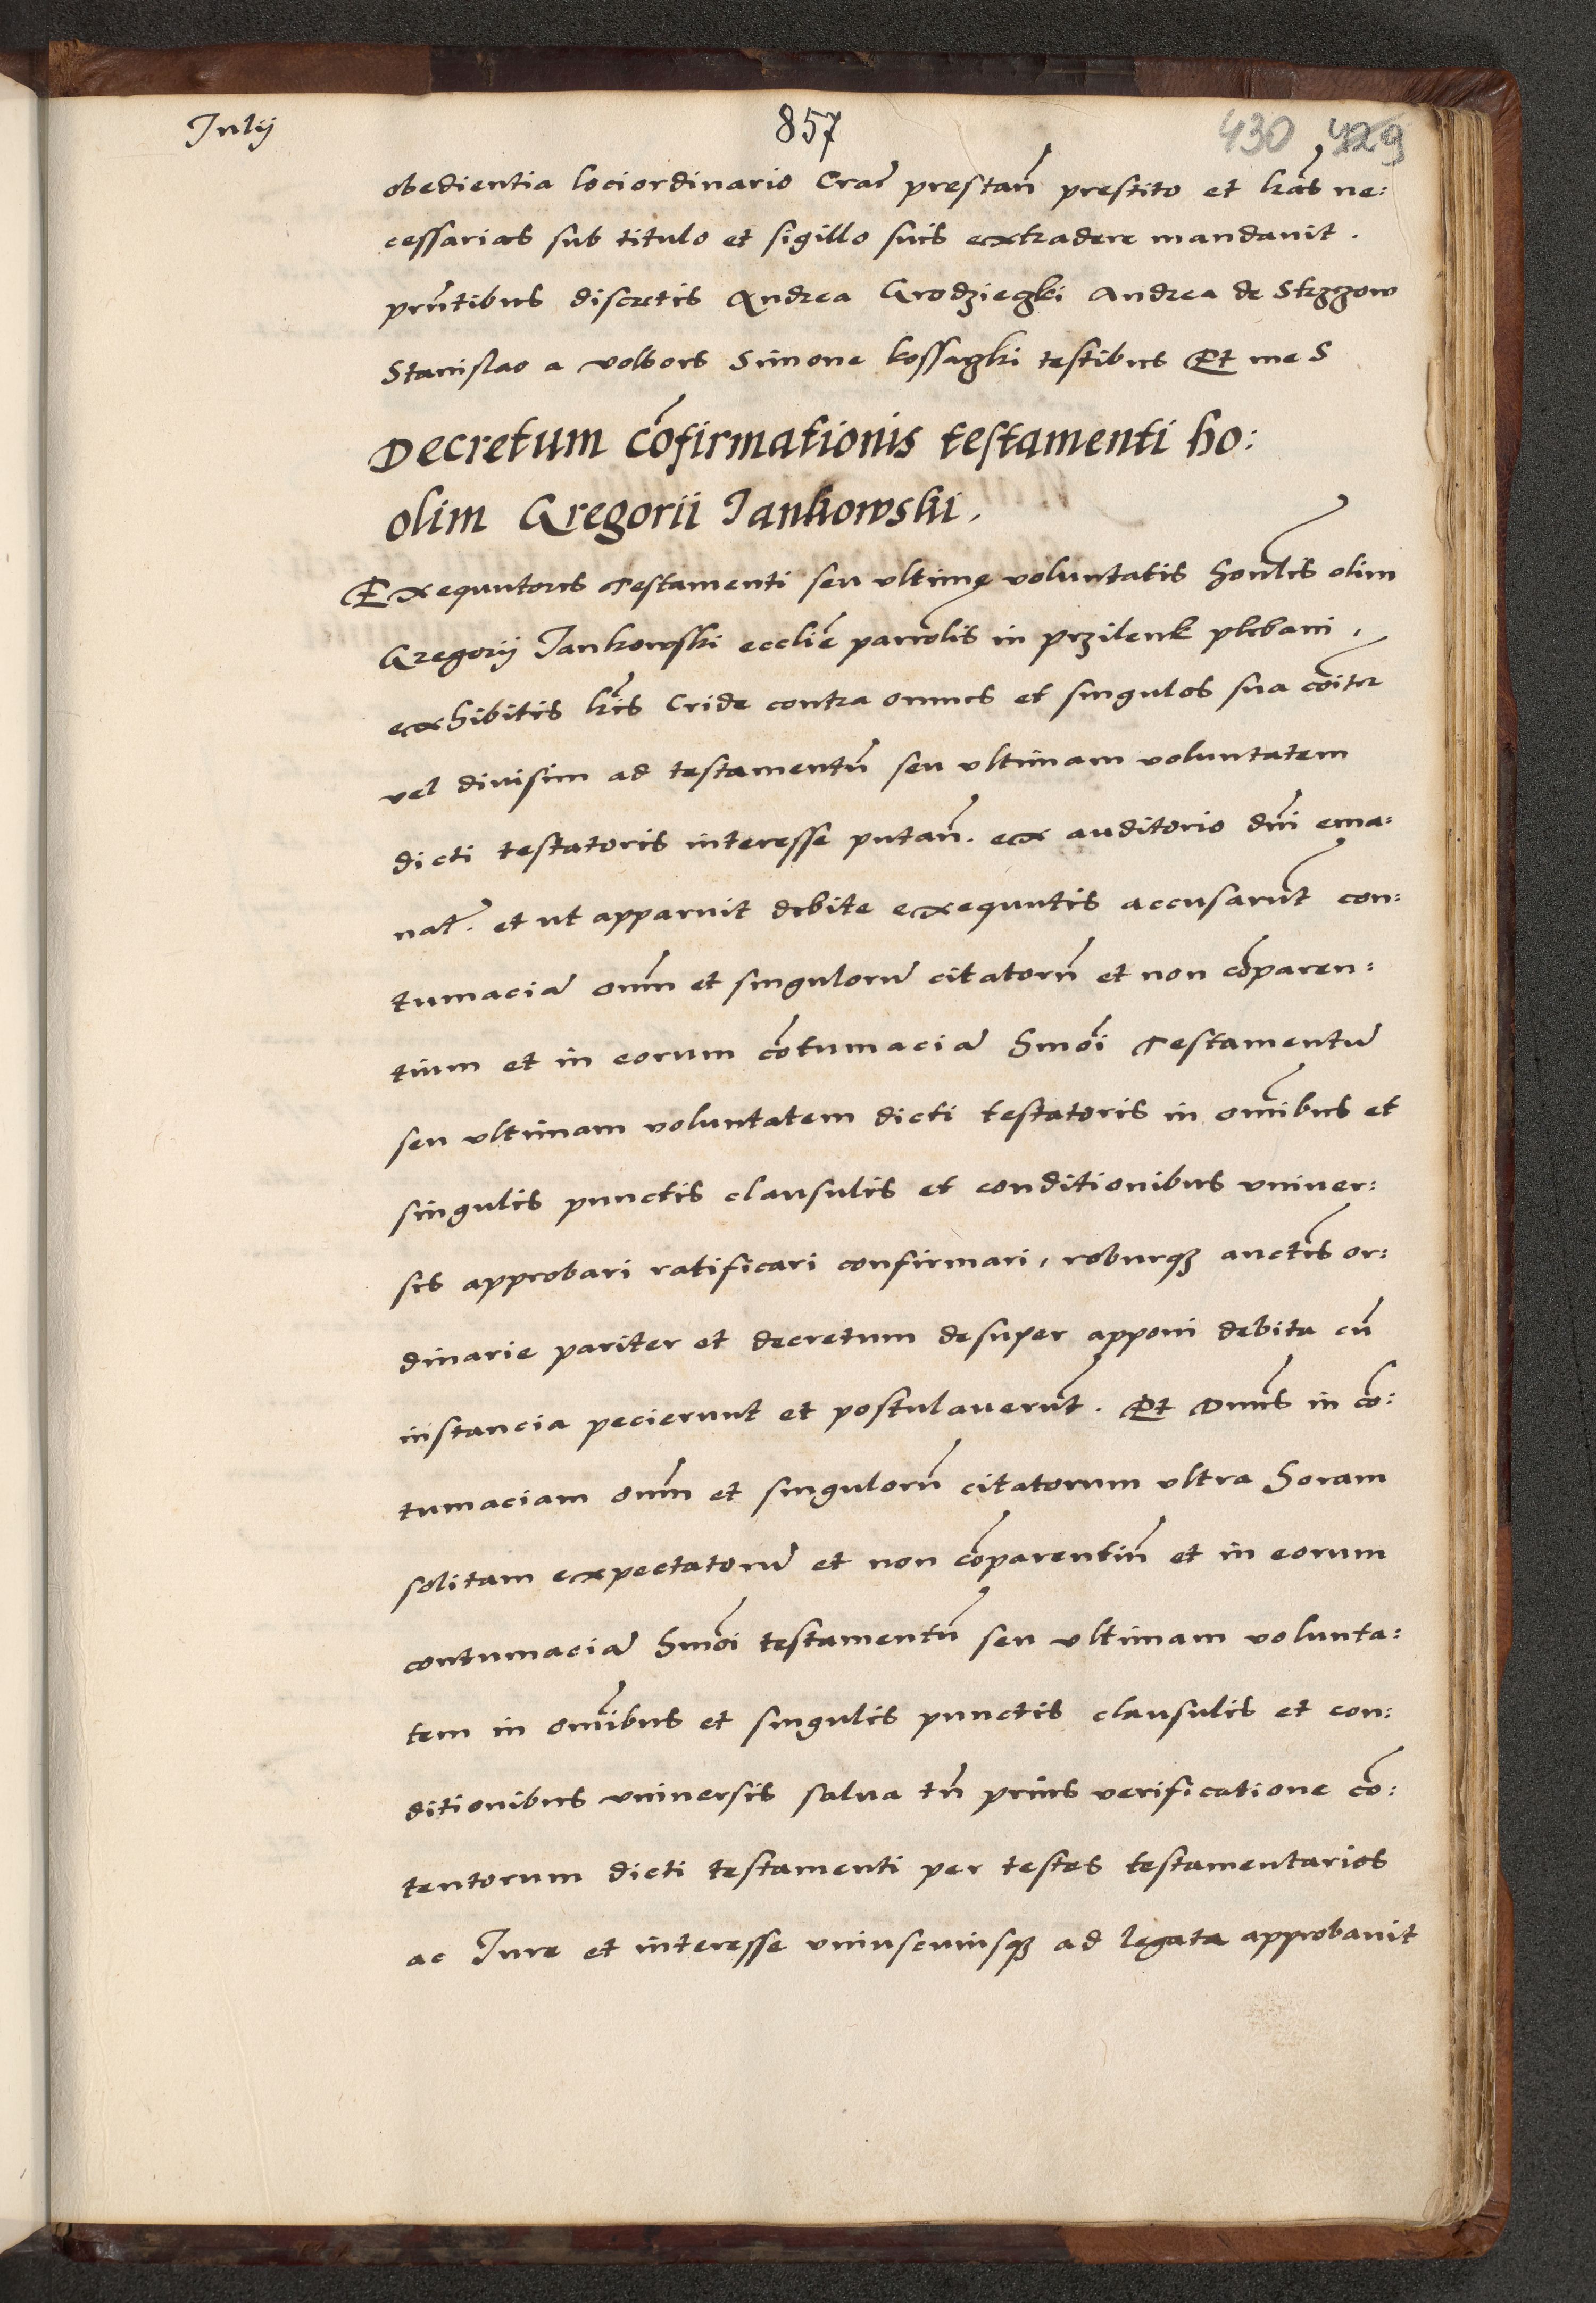 Julij
857
430 429
obedientia lociordinario Crac̃ prestañ prestito et lr̃as ne:
cessarias sub titulo et sigillo suis extradere mandavit.
prñtibus discretis Andrea Grodzieczki Andrea de Strzzow
Stanislao a Wolbors Simone kossaczki testibus Et me S
Decretum cõfirmationis testamenti ho:
olim Gregorii Jankowski.
Exequutores Testamenti seu ultimę voluntatis honl̃is olim
Gregorij Jankowski eccliẽ parrol̃is in przilenk plebani,
exhibitis lr̃is Cride contra omnes et singulos sua cõiter
vel divisim ad testamentũ seu ultimam voluntatem
dicti testatoris interesse putañ. ex auditorio dñi ema:
nat̃. et ut apparuit debite exequutis accusarũt con:
tumaciã om̃m et singulorũ citatorũ et non cõparen:
tium et in eorum cõtumaciã hm̃õi Testamentũ
seu ultimam voluntatem dicti testatoris in om̃ibus et
singulis punctis clausulis et conditionibus univer:
sis approbari ratificari confirmari, roburq̃ auctis̃ or:
dinarie pariter et decretum desuper apponi debita cũ
instancia pecierunt et postulaverũt. Et Dñus in cõ:
tumaciam om̃m et singulorũ citatorum ultra horam
solitam expectatorũ et non cõparentiũ et in eorum
contumaciã hm̃õi testamentũ seu ultimam volunta:
tem in om̃ibus et singulis punctis clausulis et con:
ditionibus universis salva tñ prius verificatione cõ:
tentorum dicti testamenti per testes testamentarios
ac Jure et interesse uniuscuiusq̃ ad legata approbavit